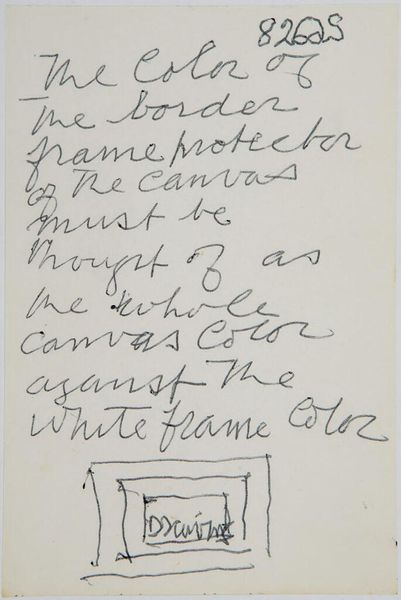 82605
The Color of
The border
frame protector
of The canvas
must be
Thougst of as
the whole
canvas Color
against The
White frame Color